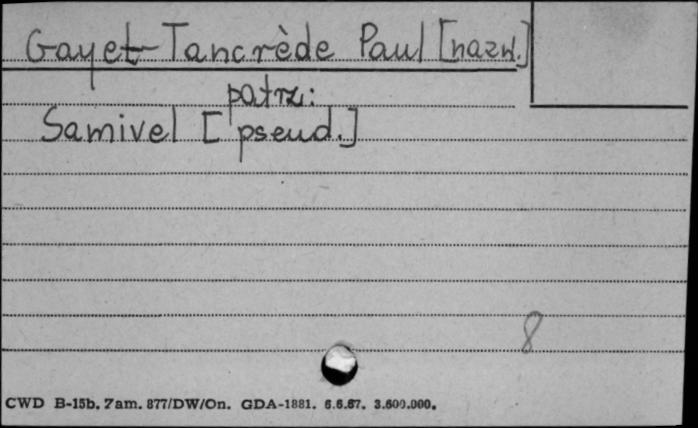 Gayet-Tancrède Paul [nazw.]
patrz:
Samivel [pseud.]
8
CWD B-15b. Zam. 877/DW/On. GDA-1881. 6.6.67. 3.600.000.